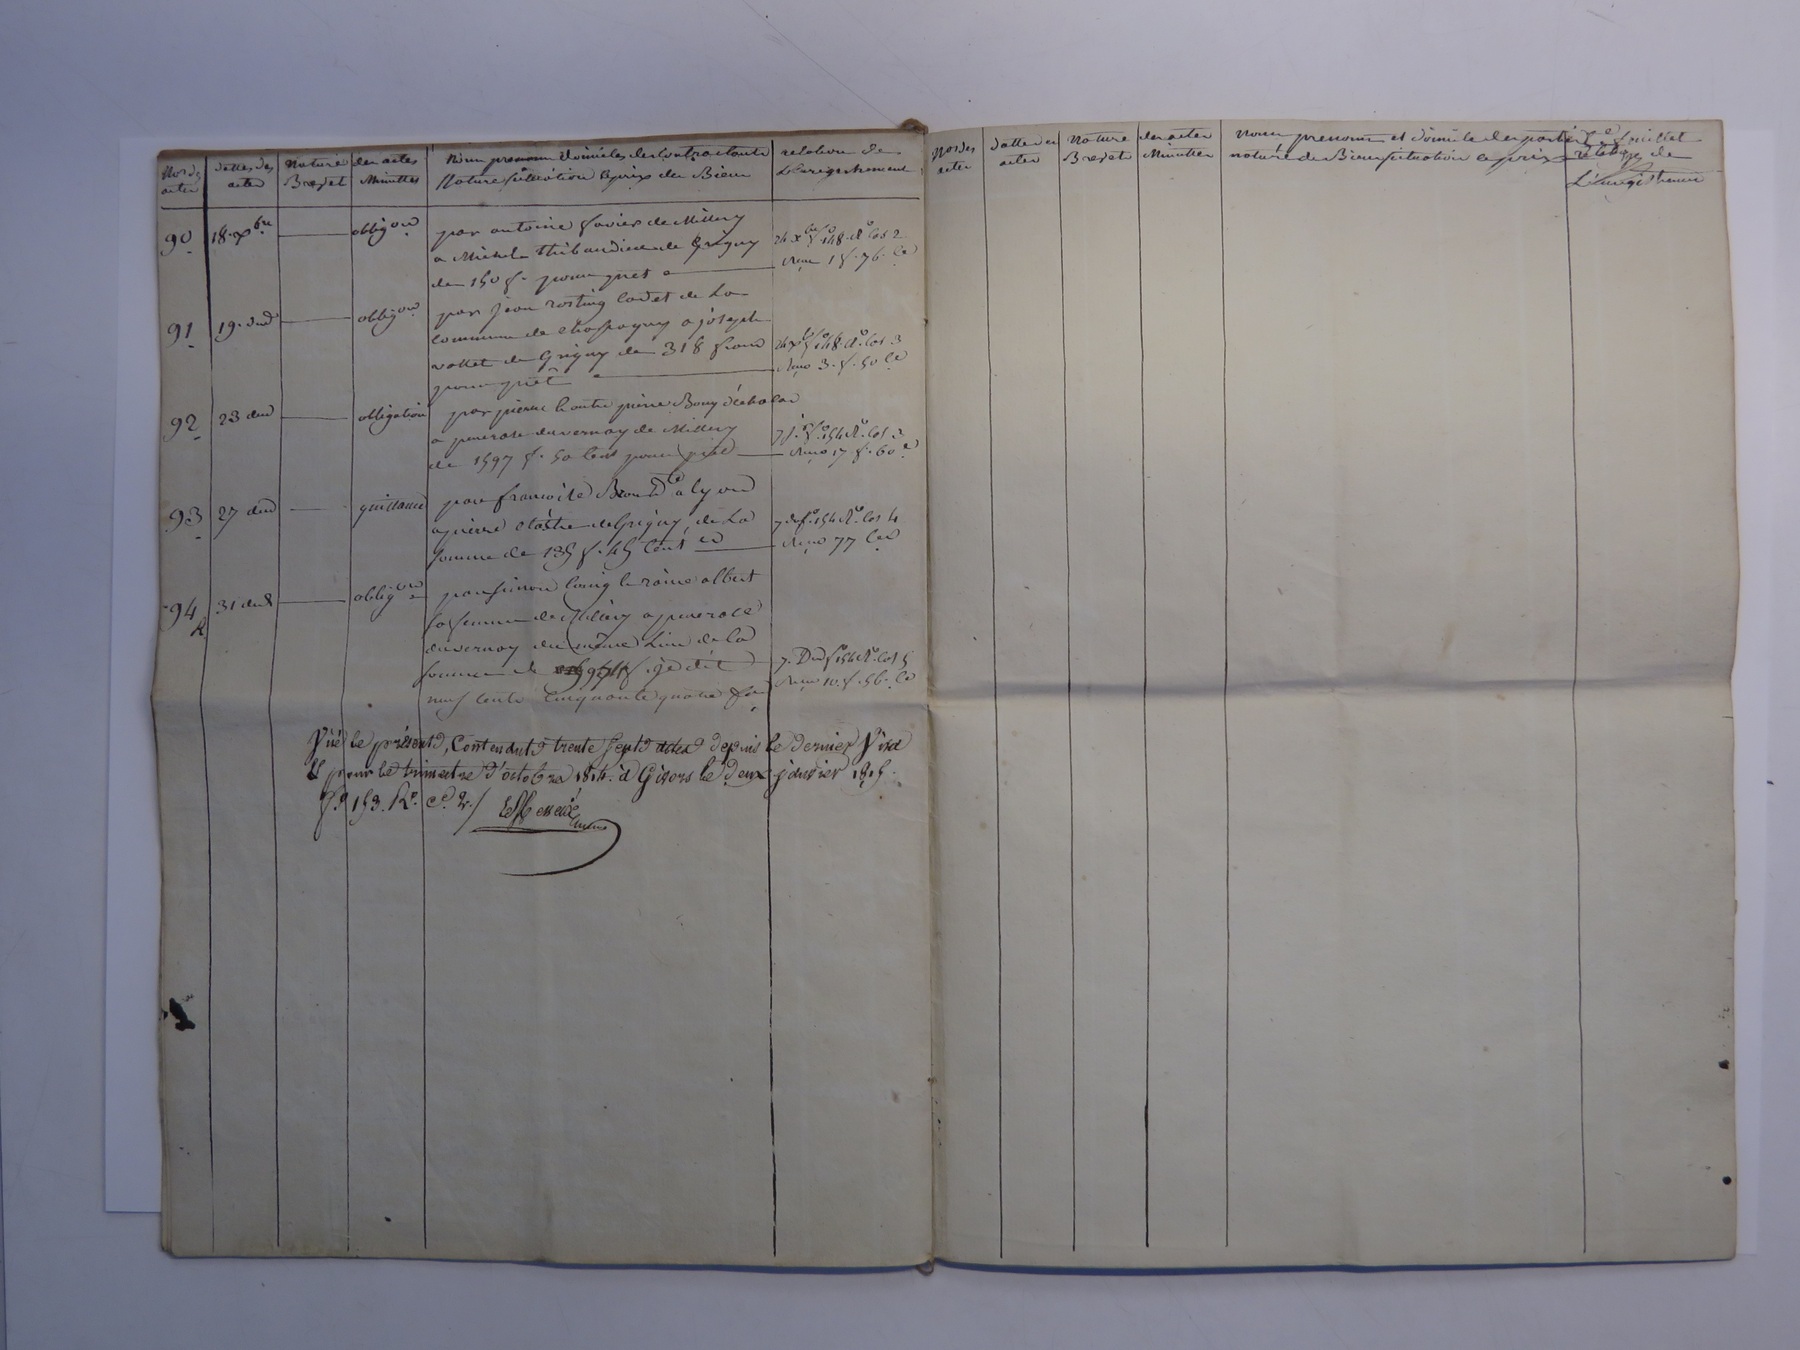 Nos des actes
dattes des actes
Nature Brevet
des actes Minuttes
Nom prenoms domiciles des Contractants
Nature situation & prix des Biens
relation de
L'enregistrement
90 18 xbre obligon par antoine favier de Millery
a Michel thibaudier de Grigny
de 150 f. pour pret
24 xbre fo 148 Ro Cos 2
Reçu 1 f. 76 Ce
91 19 dud obligon par jean cadet de La
commune de chassagny a joseph
vottet de Grigny de 318 francs
pour prêt
24 xbre fo 148 Ro Cos 3
Reçu 3 f. 50 Ce
92 23 dud obligation par pierre & autre pierre Bony
a duvernay de Millery
de 1597 f. 50 Cent pour prêt
fo 154 Ro Cos 3
Reçu 17 f. 60 Ce
93 27 dud quittance par francoise a lyon
a pierre de Grigny, de La
somme de 135 f. 45 Cent
7 dud fo 154 Ro Cos 4
Reçu 77 Ces
94 31 dud obligon par simon albert
sa femme de Millery a
duvernay du même Lieu de La
somme de je dit
neuf cents cinquante quatre
7 Dud fo 154 Ro Cos 5
Reçu 10 f. 56 Ce
Vû le présent, Contenant trente sept actes depuis le dernier Visa
& pour le trimestre d'octobre 1814. à Givors le deux janvier 1815.
fo 153. Ro. Ce 2./
Nos des actes
dattes des actes
Nature Brevet
des actes Minuttes
Noms prenoms et domicile des parties
nature des Biens situation & prix
feuillet
relation de
L'enregistrement